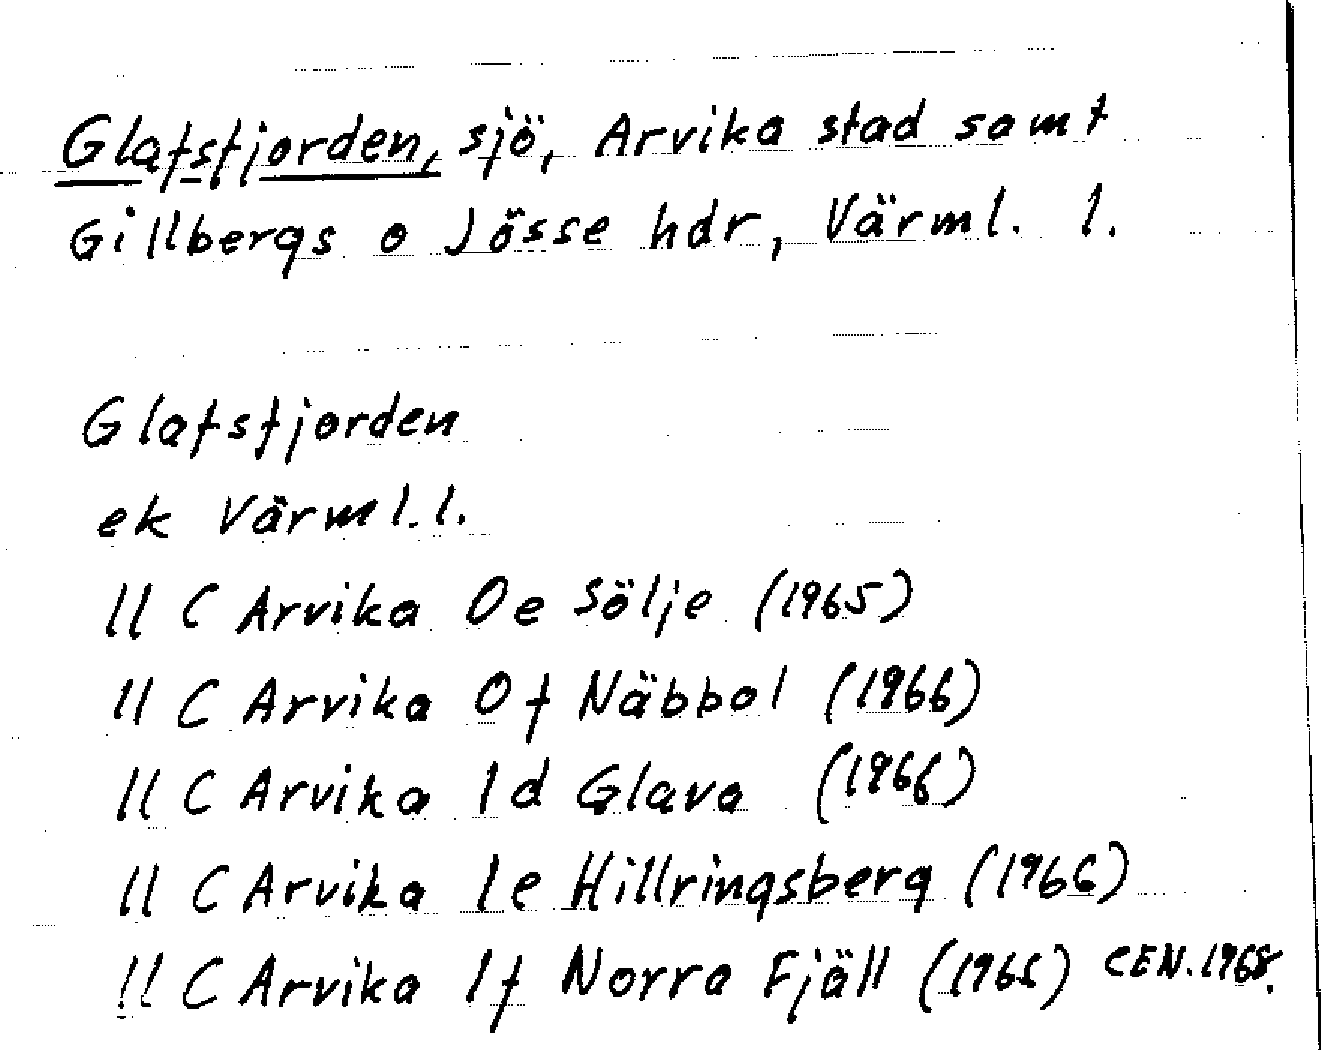 Glafsfjorden, sjö, Arvika stad samt
Gillbergs o Jösse hdr, Värml. l.
Glafsfjorden
ek Värml. l.
11 C Arvika 0e Sölje (1965)
11 C Arvika 0f Näbbol (1966)
11 C Arvika 1d Glava (1966)
11 C Arvika 1e Hillringsberg (1966)
11 C Arvika 1f Norra Fjäll (1965) CEN. 1968.